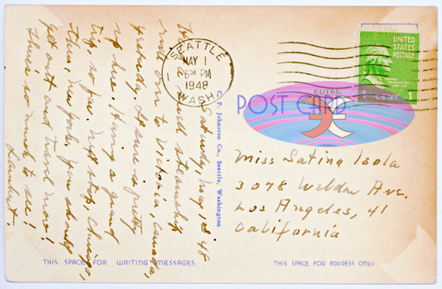 SEATTLE
MAY 1
PM
1948
WASH.
UNITED STATES
POSTAGE
1
POST CARD
C. P. Johnston Co., Seattle, Washington
Saturday, May 1st 48
steamship
ride over to Victoria, Canada,
yesterday. It sure is pretty
up here. Having a great
trip so far. Next stop, Chicago,
then New York. You should
get out and travel more!
There is much to see!
Miss Satina Isola
3078 Weldon Ave.
Los Angeles, 41
California
THIS SPACE FOR WRITING MESSAGES
THIS SPACE FOR ADDRESS ONLY